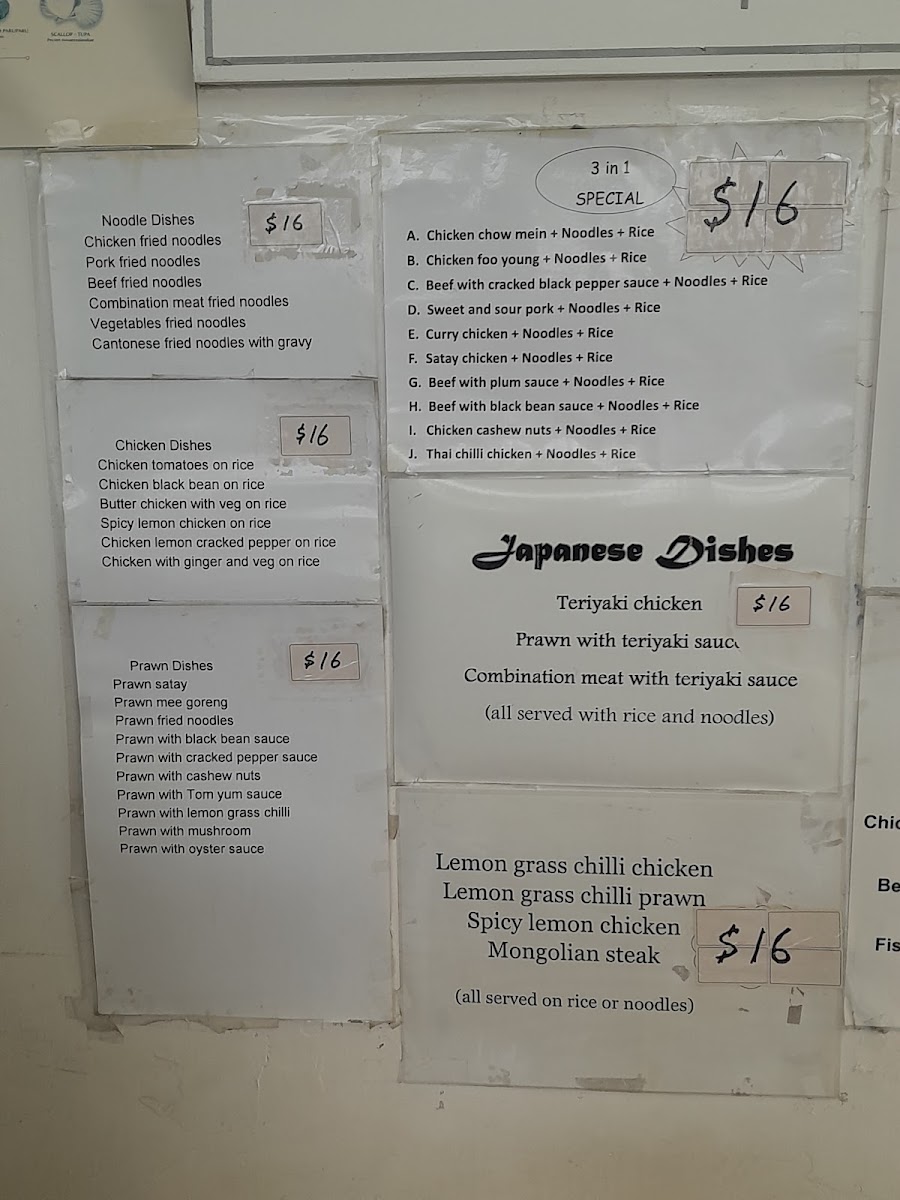 SCALLOP : TUPA
Noodle Dishes
$16
Chicken fried noodles
Pork fried noodles
Beef fried noodles
Combination meat fried noodles
Vegetables fried noodles
Cantonese fried noodles with gravy
Chicken Dishes
$16
Chicken tomatoes on rice
Chicken black bean on rice
Butter chicken with veg on rice
Spicy lemon chicken on rice
Chicken lemon cracked pepper on rice
Chicken with ginger and veg on rice
Prawn Dishes
$16
Prawn satay
Prawn mee goreng
Prawn fried noodles
Prawn with black bean sauce
Prawn with cracked pepper sauce
Prawn with cashew nuts
Prawn with Tom yum sauce
Prawn with lemon grass chilli
Prawn with mushroom
Prawn with oyster sauce
3 in 1
SPECIAL
$16
A. Chicken chow mein + Noodles + Rice
B. Chicken foo young + Noodles + Rice
C. Beef with cracked black pepper sauce + Noodles + Rice
D. Sweet and sour pork + Noodles + Rice
E. Curry chicken + Noodles + Rice
F. Satay chicken + Noodles + Rice
G. Beef with plum sauce + Noodles + Rice
H. Beef with black bean sauce + Noodles + Rice
I. Chicken cashew nuts + Noodles + Rice
J. Thai chilli chicken + Noodles + Rice
Japanese Dishes
Teriyaki chicken
$16
Prawn with teriyaki sauc
Combination meat with teriyaki sauce
(all served with rice and noodles)
Lemon grass chilli chicken
Lemon grass chilli prawn
Spicy lemon chicken
Mongolian steak
$16
(all served on rice or noodles)
Chic
Be
Fis